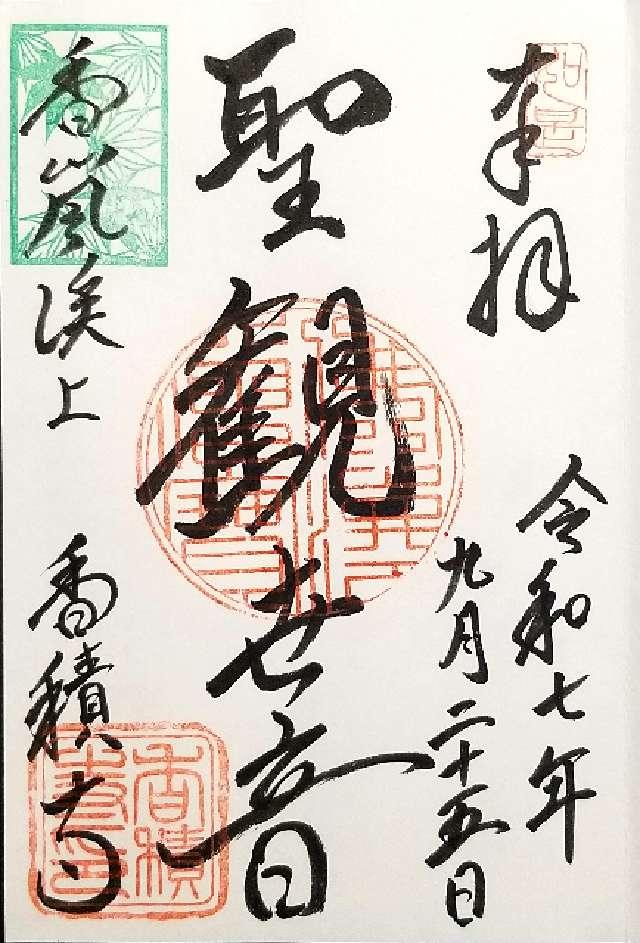 奉拝
令和七年
九月二十五日
聖観世音
香嵐渓上
香積寺
香積寺印